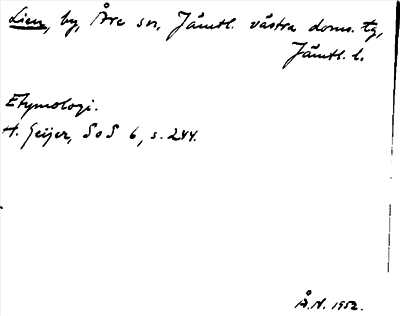 Lien, by, Åre sn, Jämtl. västra doms. tg,
Jämtl. l.
Etymologi.
H. Geijer, SoS 6, s. 244.
Å.N. 1952.